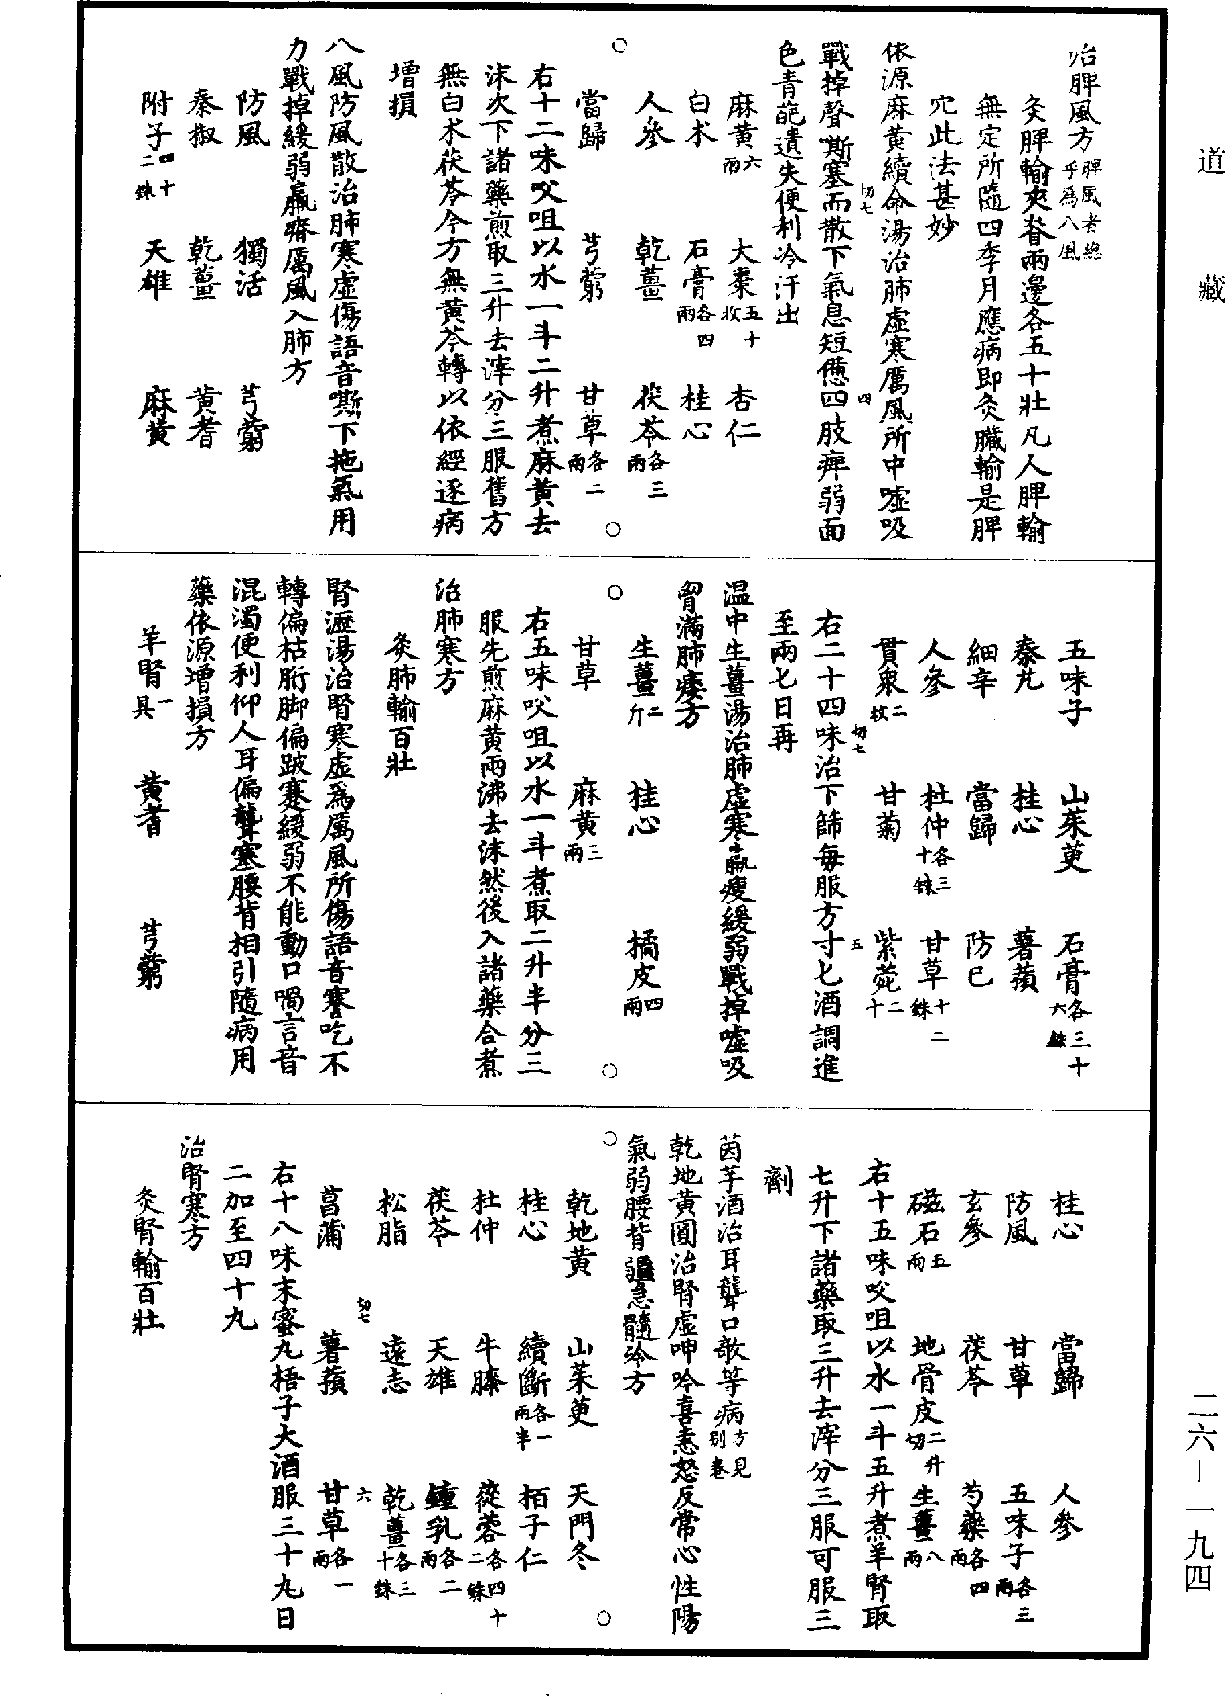 道藏
治脾風方脾風者總乎為八風
灸脾輸夾脊兩邊各五十壯凡人脾輸
無定所隨四季月應病即灸臟輸是脾
穴此法甚妙
依源麻黃續命湯治肺虛寒厲風所中噓吸
戰掉聲嘶塞而散下氣息短憊四肢痺弱面
色青葩遺失便利冷汗出
麻黃六兩 大棗五十枚 杏仁
白朮 石膏各四兩 桂心
人參 乾薑 茯苓各三兩
當歸 芎藭 甘草各二兩
右十二味㕮咀以水一斗二升煮麻黃去
沫次下諸藥煎取三升去滓分三服舊方
無白朮茯苓今方無黃芩轉以依經逐病
增損
八風防風散治肺寒虛傷語音嘶下拖氣用
力戰掉緩弱羸瘠厲風入肺方
防風 獨活 芎藭
秦椒 乾薑 黃耆
附子四十二銖 天雄 麻黃
切七
四
五味子 山茱萸 石膏各三十六銖
秦艽 桂心 薯蕷
細辛 當歸 防已
人參 杜仲各三十銖 甘草十二銖
貫眾二枚 甘菊 紫菀二十
右二十四味治下篩每服方寸匕酒調進
至兩匕日再
溫中生薑湯治肺虛寒羸瘦緩弱戰掉噓吸
胷滿肺痿方
生薑二斤 桂心 橘皮四兩
甘草 麻黃三兩
右五味㕮咀以水一斗煮取二升半分三
服先煎麻黃兩沸去沫然後入諸藥合煮
治肺寒方
灸肺輸百壯
腎瀝湯治腎寒虛為厲風所傷語音蹇吃不
轉偏枯胻脚偏跛蹇緩弱不能動口喎言音
混濁便利仰人耳偏聾塞腰背相引隨病用
藥依源增損方
羊腎一具 黃耆 芎藭
切七
五
桂心 當歸 人參
防風 甘草 五味子各三兩
玄參 茯苓 芍藥各四兩
磁石五兩 地骨皮二升切 生薑八兩
右十五味㕮咀以水一斗五升煮羊腎取
七升下諸藥取三升去滓分三服可服三
劑
茵芋酒治耳聾口欹等病方見別卷
乾地黃圓治腎虛呻吟喜恚怒反常心性陽
氣弱腰背彊急髓冷方
乾地黃 山茱萸 天門冬
桂心 續斷各一兩半 栢子仁
杜仲 牛膝 蓯蓉各四十二銖
茯苓 天雄 鍾乳各二兩
松脂 遠志 乾薑各三十銖
菖蒲 薯蕷 甘草各一兩
右十八味末蜜丸梧子大酒服三十丸日
二加至四十丸
治腎寒方
灸腎輸百壯
切七
六
二六—一九四